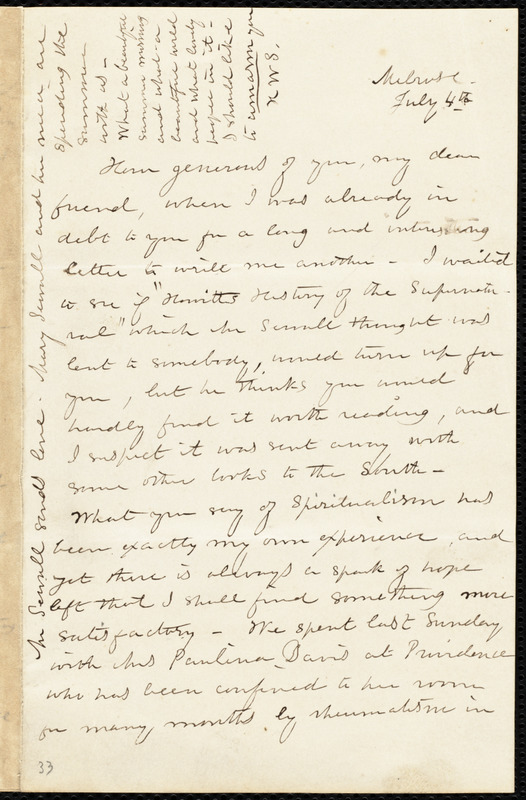 Melrose.
July 4th
How generous of you, my dear
friend, when I was already in
debt to you for a long and interesting
letter to write me another - I waited
to see if "Howitts History of the Supernatu-
ral" which Mr Sewall thought was
lent to somebody, would turn up for
you, but he thinks you would
hardly find it worth reading, and
I suspect it was sent away with
some other books to the South -
What you say of Spiritualism has
been exactly my own experience, and
yet there is always a spark of hope
left that I shall find something more
satisfactory - We spent last Sunday
with Mrs Paulina Davis at Providence
who has been confined to her room
for many months by rheumatism in
33
Mr Sewall sends love. Mary Sewall and her men are
spending the
summer
with us -
What a beautiful
summer morning
and what a
beautiful world
and what lovely
people in it -
I should like
to embrace you
H W S.